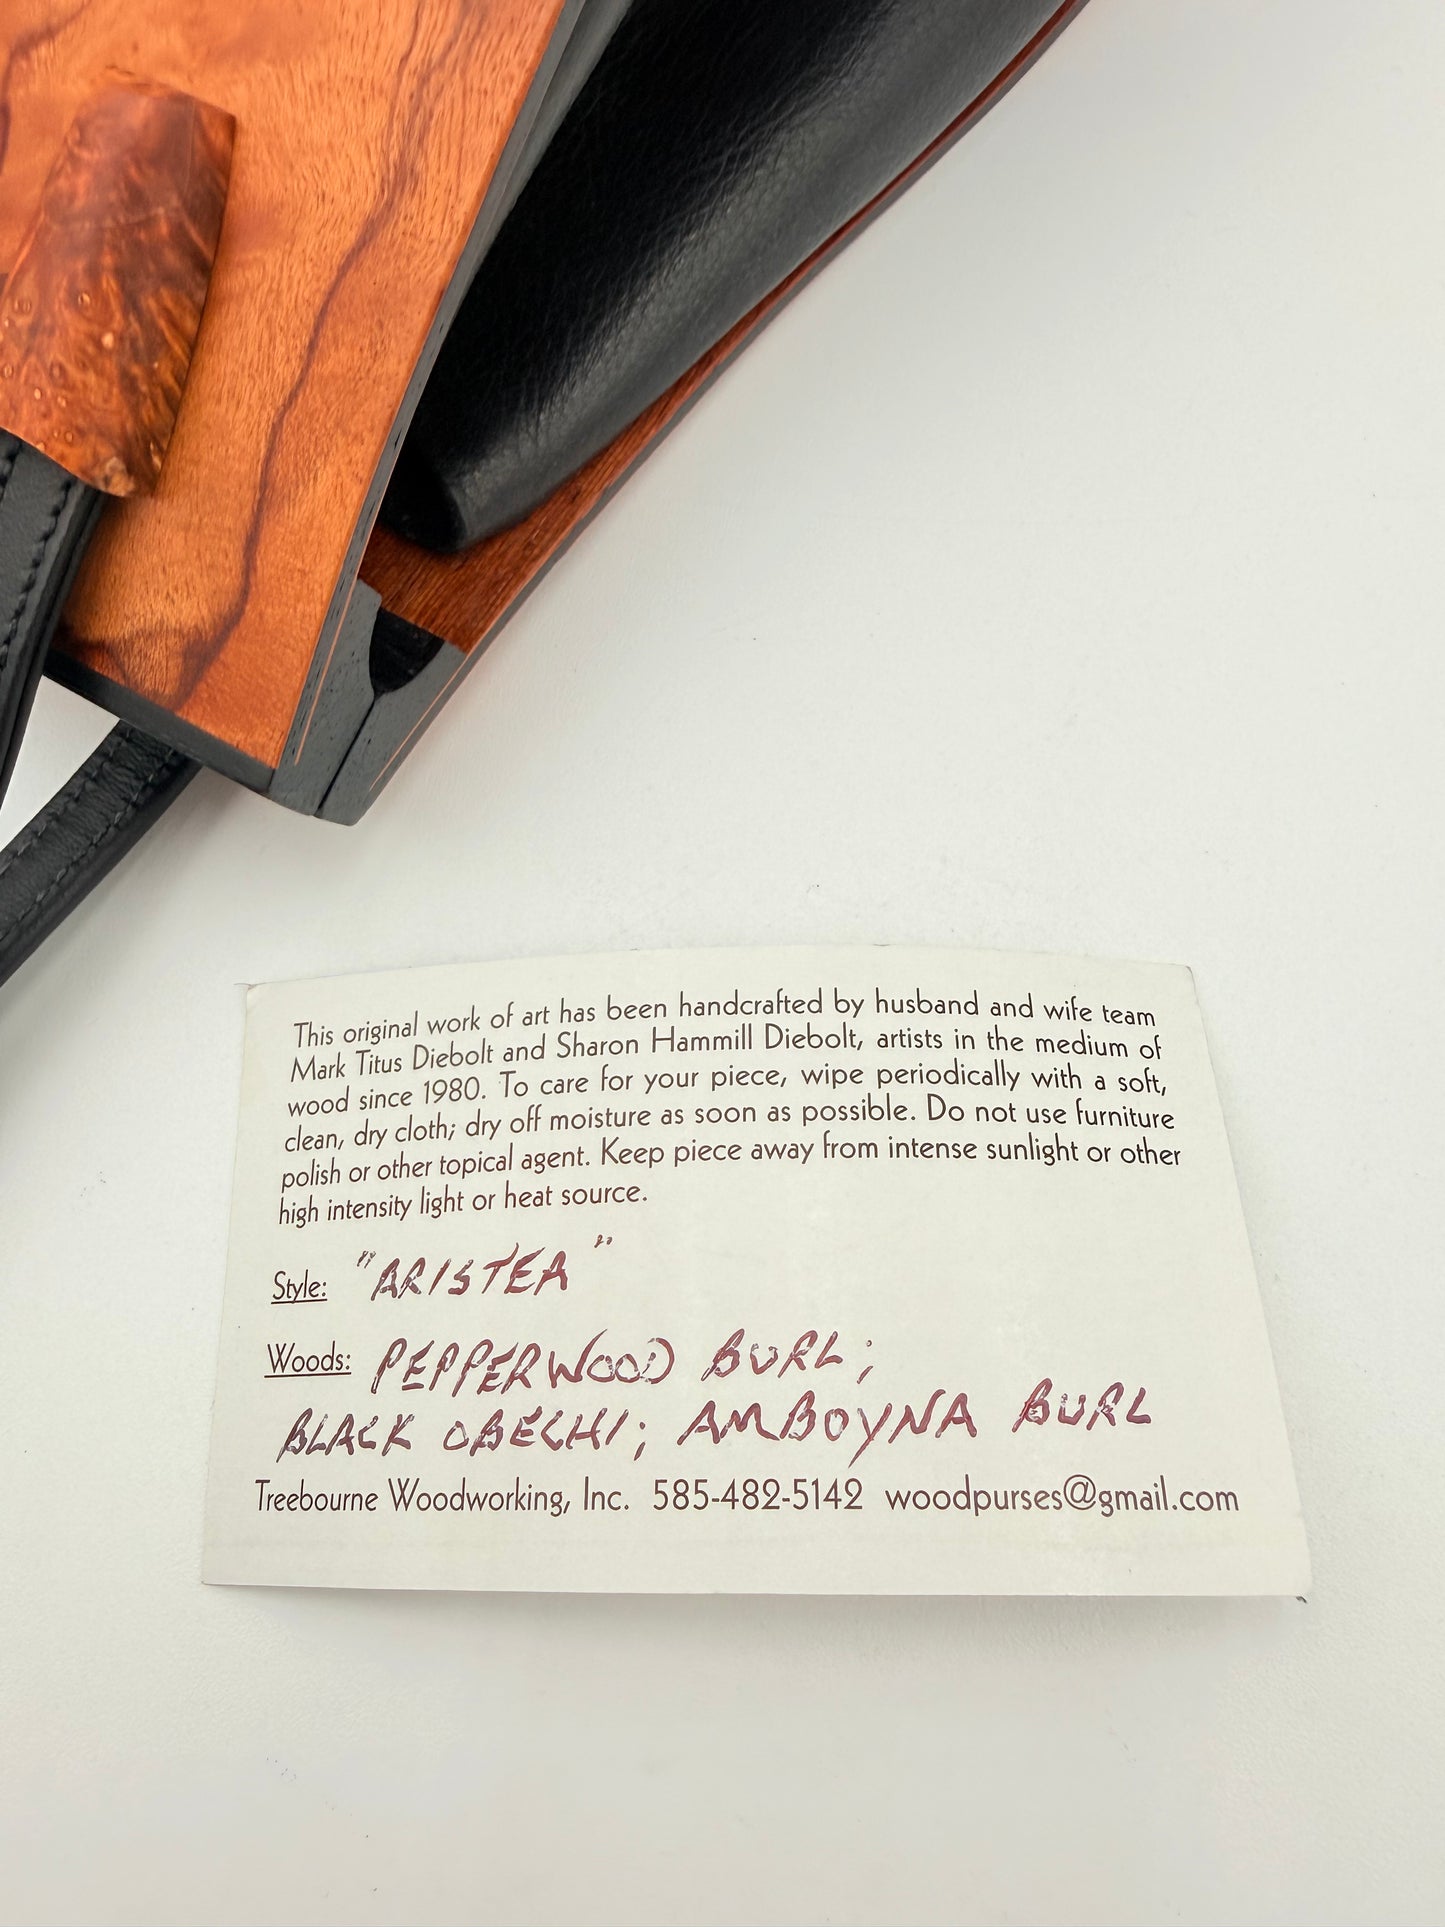 This original work of art has been handcrafted by husband and wife team
Mark Titus Diebolt and Sharon Hammill Diebolt, artists in the medium of
wood since 1980. To care for your piece, wipe periodically with a soft,
clean, dry cloth; dry off moisture as soon as possible. Do not use furniture
polish or other topical agent. Keep piece away from intense sunlight or other
high intensity light or heat source.
Style: "ARISTEA"
Woods: PEPPERWOOD BURL;
BLACK OBECHI; AMBOYNA BURL
Treebourne Woodworking, Inc. 585-482-5142 woodpurses@gmail.com